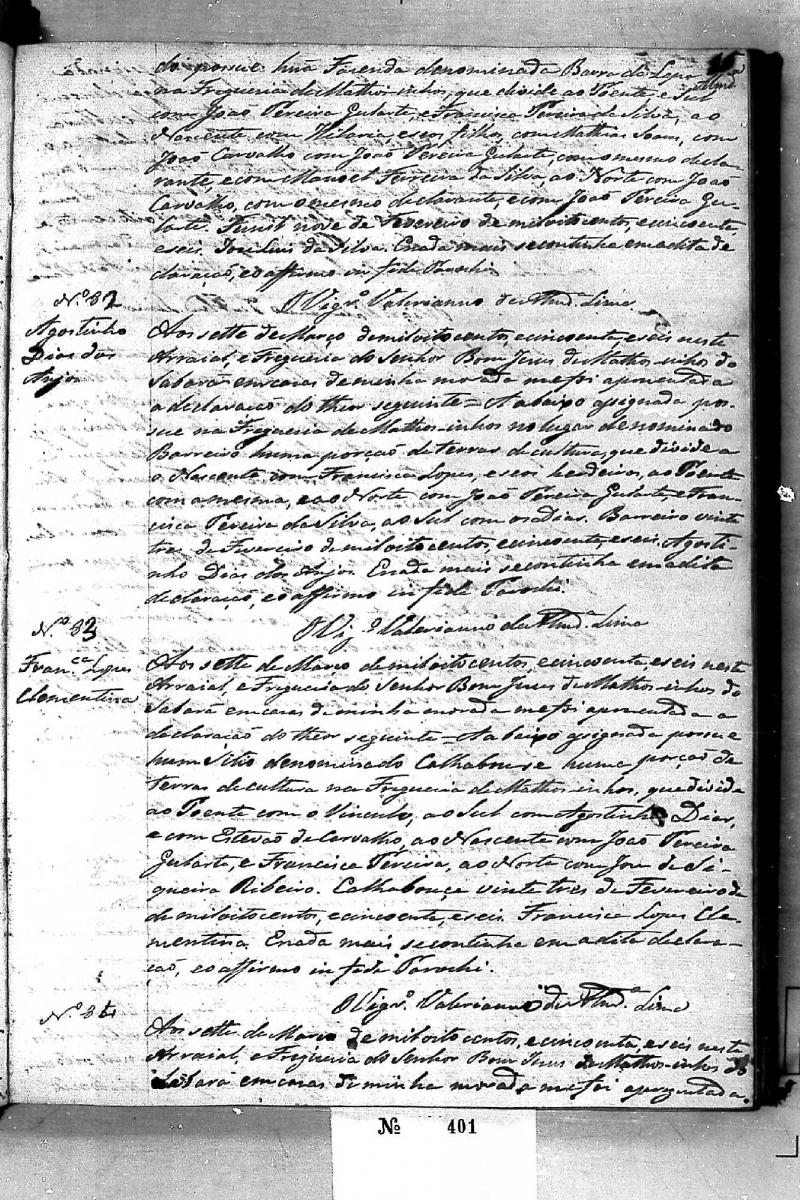 15
do possue huã Fazenda denominada Barra da Lapa
na Freguesia de Mathosinhos, que divide ao Poente e Sul
com João Pereira Gularte, e Francisca Pereira da Silva, ao
Nascente com Hilaria, e seos filhos, com Mathias Soares, com
João Carvalho com João Pereira Gularte, com o mesmo decla-
rante, e com Manoel Ferreira da Silva, ao Norte com João
Carvalho, com o mesmo declarante, e com João Pereira Gu-
larte. nove de Fevereiro de mil oito centos, e cincoenta,
e seis. José Luis da Silva. E nada mais se continha em a dita de
claração, e o affirmo in fide Parochi.
O Vigr.º Valerianno de Almd.ª Lima
N.º 82
Agostinho
Dias dos
Anjos
Aos sette de Março de mil oito centos, e cincoenta, e seis neste
Arraial, e Freguesia do Senhor Bom Jesus de Mathosinhos do
Sabará em casas de minha morada me foi aprezentada
a declaração do theor seguinte = A abaixo assignada pos-
sue na Freguesia de Mathosinhos no lugar denominado
Barreiro huma porção de terras de cultura, que divide a
o Nascente com Francisca Lopes, e seos herdeiros, ao Poente
com a mesma, e ao Norte com João Pereira Gularte, e Fran-
cisca Pereira da Silva, ao Sul com os Dias. Barreiro vinte
tres de Fevereiro de mil oito centos, e cincoenta, e seis. Agosti-
nho Dias dos Anjos. E nada mais se continha em a dita
declaração, e o affirmo in fide Parochi.
O Vig.º Valerianno de Almd.ª Lima
N.º 83
Fran.ca Lopes
Clementina
Aos sette de Março de mil oito centos, e cincoenta, e seis neste
Arraial, e Freguesia do Senhor Bom Jesus de Mathosinhos do
Sabará em casas de minha morada me foi aprezentada a
declaração do theor seguinte = A abaixo assignada possue
hum Sitio denominado Calhabouse huma porção de
terras de cultura na Freguesia de Mathosinhos, que divide
ao Poente com o Vinculo, ao Sul com Agostinho Dias,
e com Estevão de Carvalho, ao Nascente com João Pereira
Gularte, e Francisca Pereira, ao Norte com José de Si-
queira Ribeiro. Calhabouça vinte tres de Fevereiro de
de mil oito centos, e cincoenta, e seis. Francisca Lopes Cle-
mentina. E nada mais se continha em a dita declara-
ção, e o affirmo in fide Parochi.
O Vigr.º Valerianno de Almd.ª Lima
N.º 84
Aos sette de Março de mil oito centos, e cincoenta, e seis neste
Arraial, e Freguesia do Senhor Bom Jesus de Mathosinhos do
Sabará em casas de minha morada me foi aprezentada
Nº 401